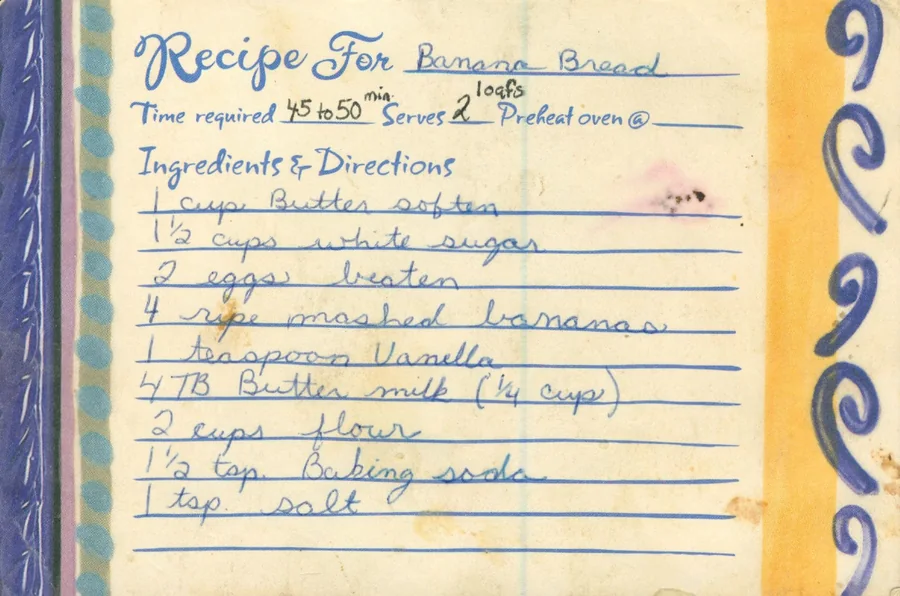 Recipe For Banana Bread
Time required 45 to 50 min. Serves 2 loafs Preheat oven @
Ingredients & Directions
1 cup Butter soften
1 1/2 cups white sugar
2 eggs beaten
4 ripe mashed bananas
1 teaspoon Vanella
4 TB Butter milk (1/4 cup)
2 cups flour
1 1/2 tsp. Baking soda
1 tsp. salt